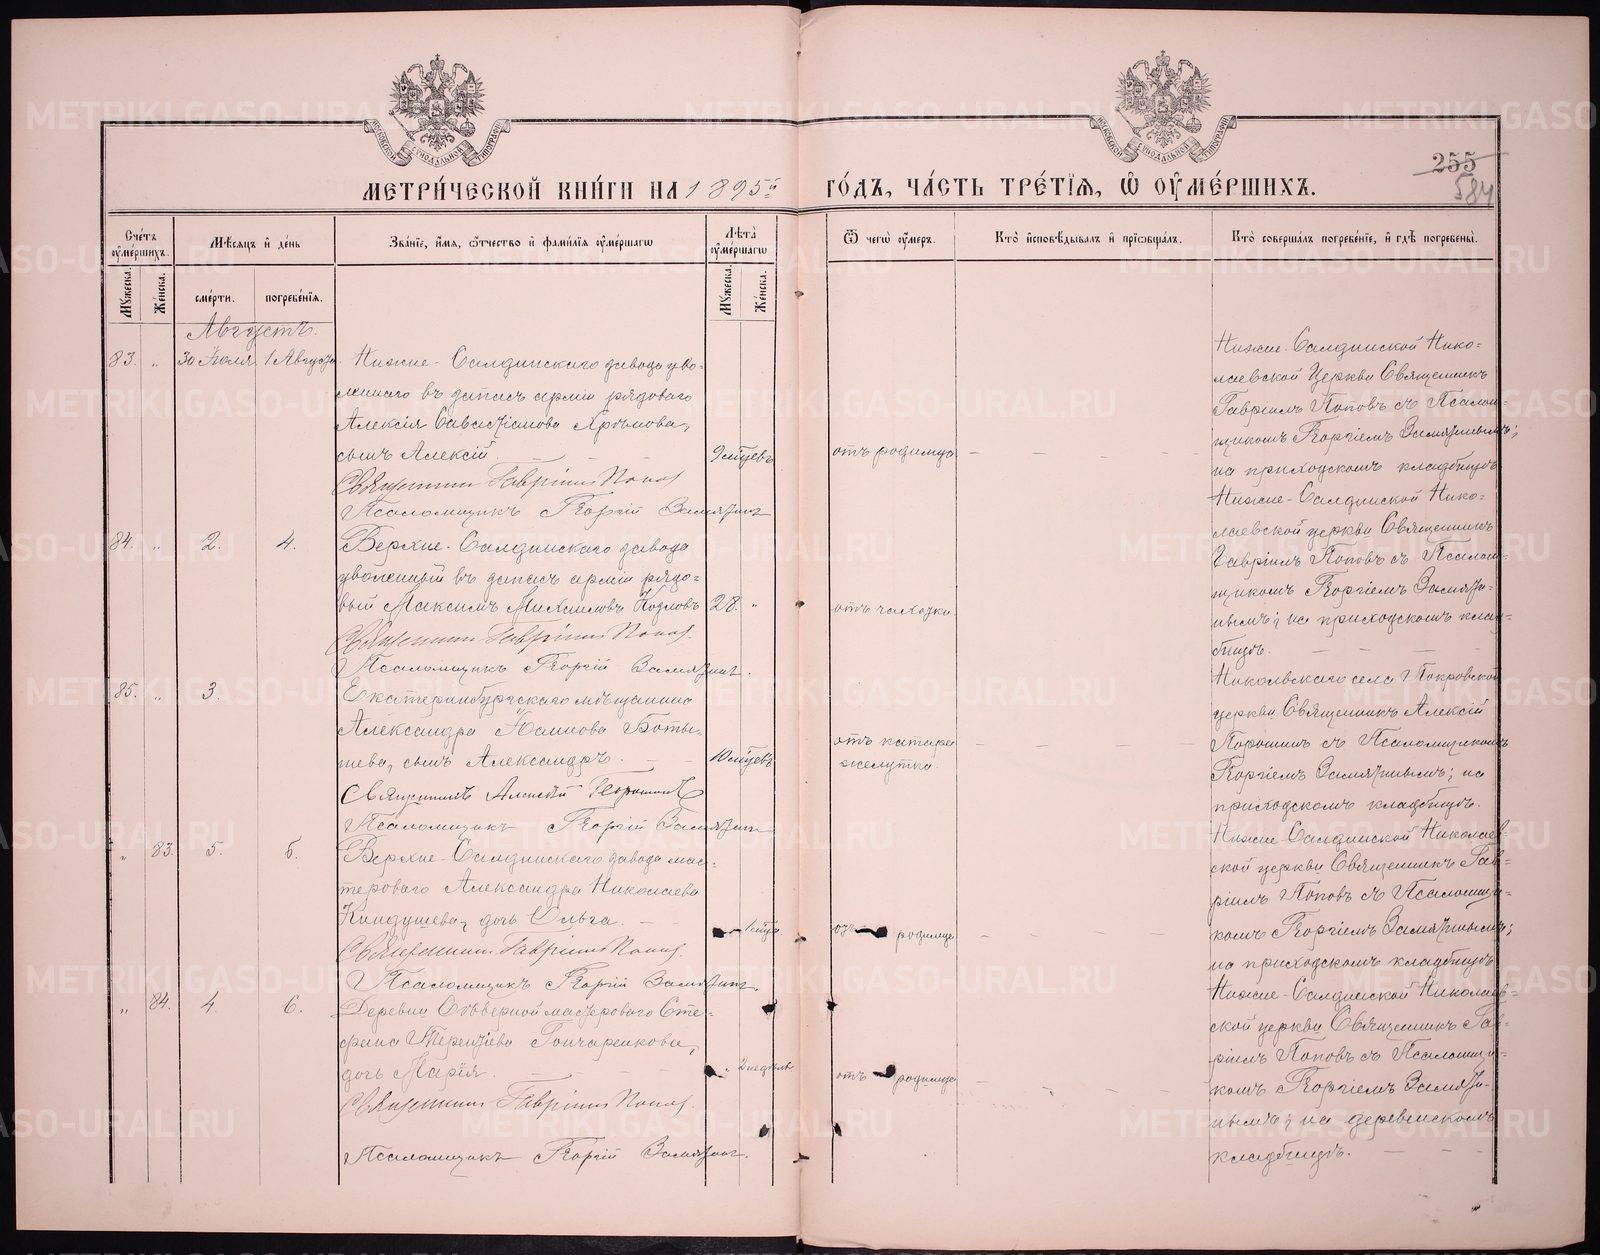 МЕТРИ́ЧЕСКОЙ КНИ́ГИ НА 1895й ГО́ДЪ, ЧА́СТЬ ТРЕ́ТЇЯ, Ѡ ОУ҆МЕ́РШИХЪ.
255
584
Сче́тъ оу҆ме́ршихъ.
Мѣ́сяцъ и҆ де́нь
Зва́нїе, и҆́мя, ѻ҆́тчество и҆ фами́лїя оу҆ме́ршагѡ
Лѣ́та оу҆ме́ршагѡ
Ѿ чегѡ̀ оу҆́меръ.
Кто̀ и҆сповѣ́дывалъ и҆ прїѡбща́лъ.
Кто̀ соверша́лъ погребе́нїе, и҆ гдѣ̀ погребены̀.
Мꙋ́жеска.
Же́нска.
сме́рти.
погребе́нїя.
Мꙋ́жеска.
Же́нска.
Августъ.
83. " 30 Іюля. 1 Августа.
Нижне-Салдинскаго завода уво-
леннаго въ запасъ арміи рядоваго
Алексія Савастіанова
сынъ Алексій. 9 мцевъ
Священникъ Гавріилъ Поповъ
Псаломщикъ Георгій Замятинъ
отъ родимца
Нижне-Салдинской Нико-
лаевской Церкви Священникъ
Гавріилъ Поповъ съ Псалом-
щикомъ Георгіемъ Замятинымъ;
на приходскомъ кладбищѣ
84. " 2. 4.
Верхне-Салдинскаго завода
уволенный въ запасъ арміи рядо-
вый Максимъ Михаиловъ Козловъ 28. "
Священникъ Гавріилъ Поповъ.
Псаломщикъ Георгій Замятинъ.
отъ чахотки
Нижне-Салдинской Нико-
лаевской церкви Священникъ
Гавріилъ Поповъ съ Псалом-
щикомъ Георгіемъ Замяти-
нымъ; на приходскомъ клад-
бищѣ.
85. " 3.
Екатеринбургскаго мѣщанина
Александра
сынъ Александръ. 10 мцевъ
Священникъ Алексѣй Порошинъ
Псаломщикъ Георгій Замятинъ
отъ катара
желутка
Никольскаго села Покровской
церкви Священникъ Алексій
Порошинъ съ Псаломщикомъ
Георгіемъ Замятинымъ; на
приходскомъ кладбищѣ.
" 83. 5. 6.
Верхне-Салдинскаго завода мас-
террового Александра Николаева
дочь Ольга. 1 мца
Священникъ Гавріилъ Поповъ.
Псаломщикъ Георгій Замятинъ.
отъ родимца
Нижне-Салдинской Николаев-
ской церкви Священникъ Гав-
ріилъ Поповъ съ Псаломщи-
комъ Георгіемъ Замятинымъ;
на приходскомъ кладбищѣ
" 84. 4. 6.
Деревни мастероваго Сте-
фана Терентіева Гончаренкова,
дочь Марія. " 2 недѣль
Священникъ Гавріилъ Поповъ.
Псаломщикъ Георгій Замятинъ.
отъ родимца
Нижне-Салдинской Николаев-
ской церкви Священникъ Гав-
ріилъ Поповъ съ Псаломщи-
комъ Георгіемъ Замяти-
нымъ; на деревенскомъ
кладбищѣ.